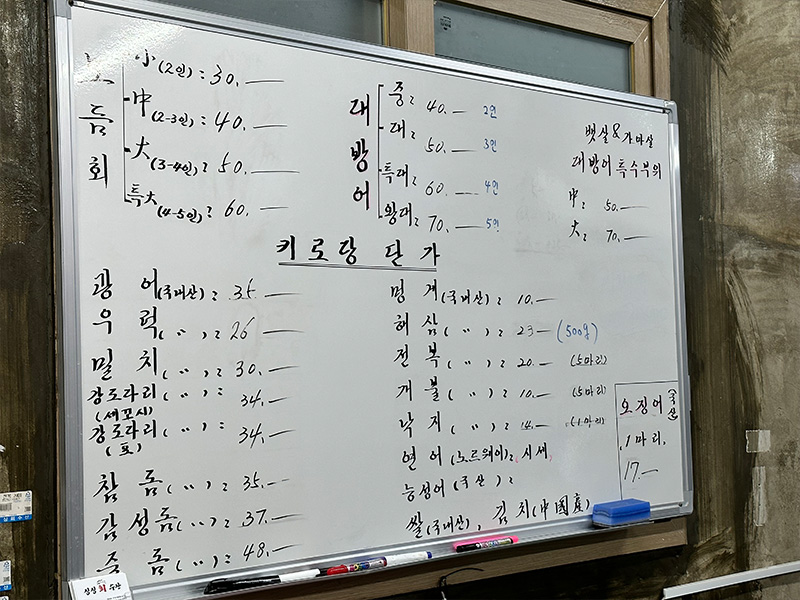 모듬회
小(2인) : 30.―
中(2-3인) : 40.―
大(3-4인) : 50.―
특大(4-5인) : 60.―
대방어
중 : 40.― 2인
대 : 50.― 3인
특대 : 60.― 4인
왕대 : 70.― 5인
뱃살 & 가마살
대방어 특수부위
中 : 50.―
大 : 70.―
키로당 단가
광어(국내산) : 35.―
우럭( 〃 ) : 26―
밀치( 〃 ) : 30.―
강도다리( 〃 ) : 34.―
(세꼬시)
강도다리( 〃 ) : 34.―
(포)
참돔( 〃 ) : 35.―
감성돔( 〃 ) : 37.―
줄돔( 〃 ) : 48.―
멍게(국내산) : 10.―
해삼( 〃 ) : 23― (500g)
전복( 〃 ) : 20.― (5마리)
개불( 〃 ) : 10.― (5마리)
낙지( 〃 ) : 14.― (1마리)
연어(노르웨이) : 시세
능성어(국산) :
쌀(국내산), 김치(中國産)
오징어(국산)
1마리.
17.―
싱싱회수산